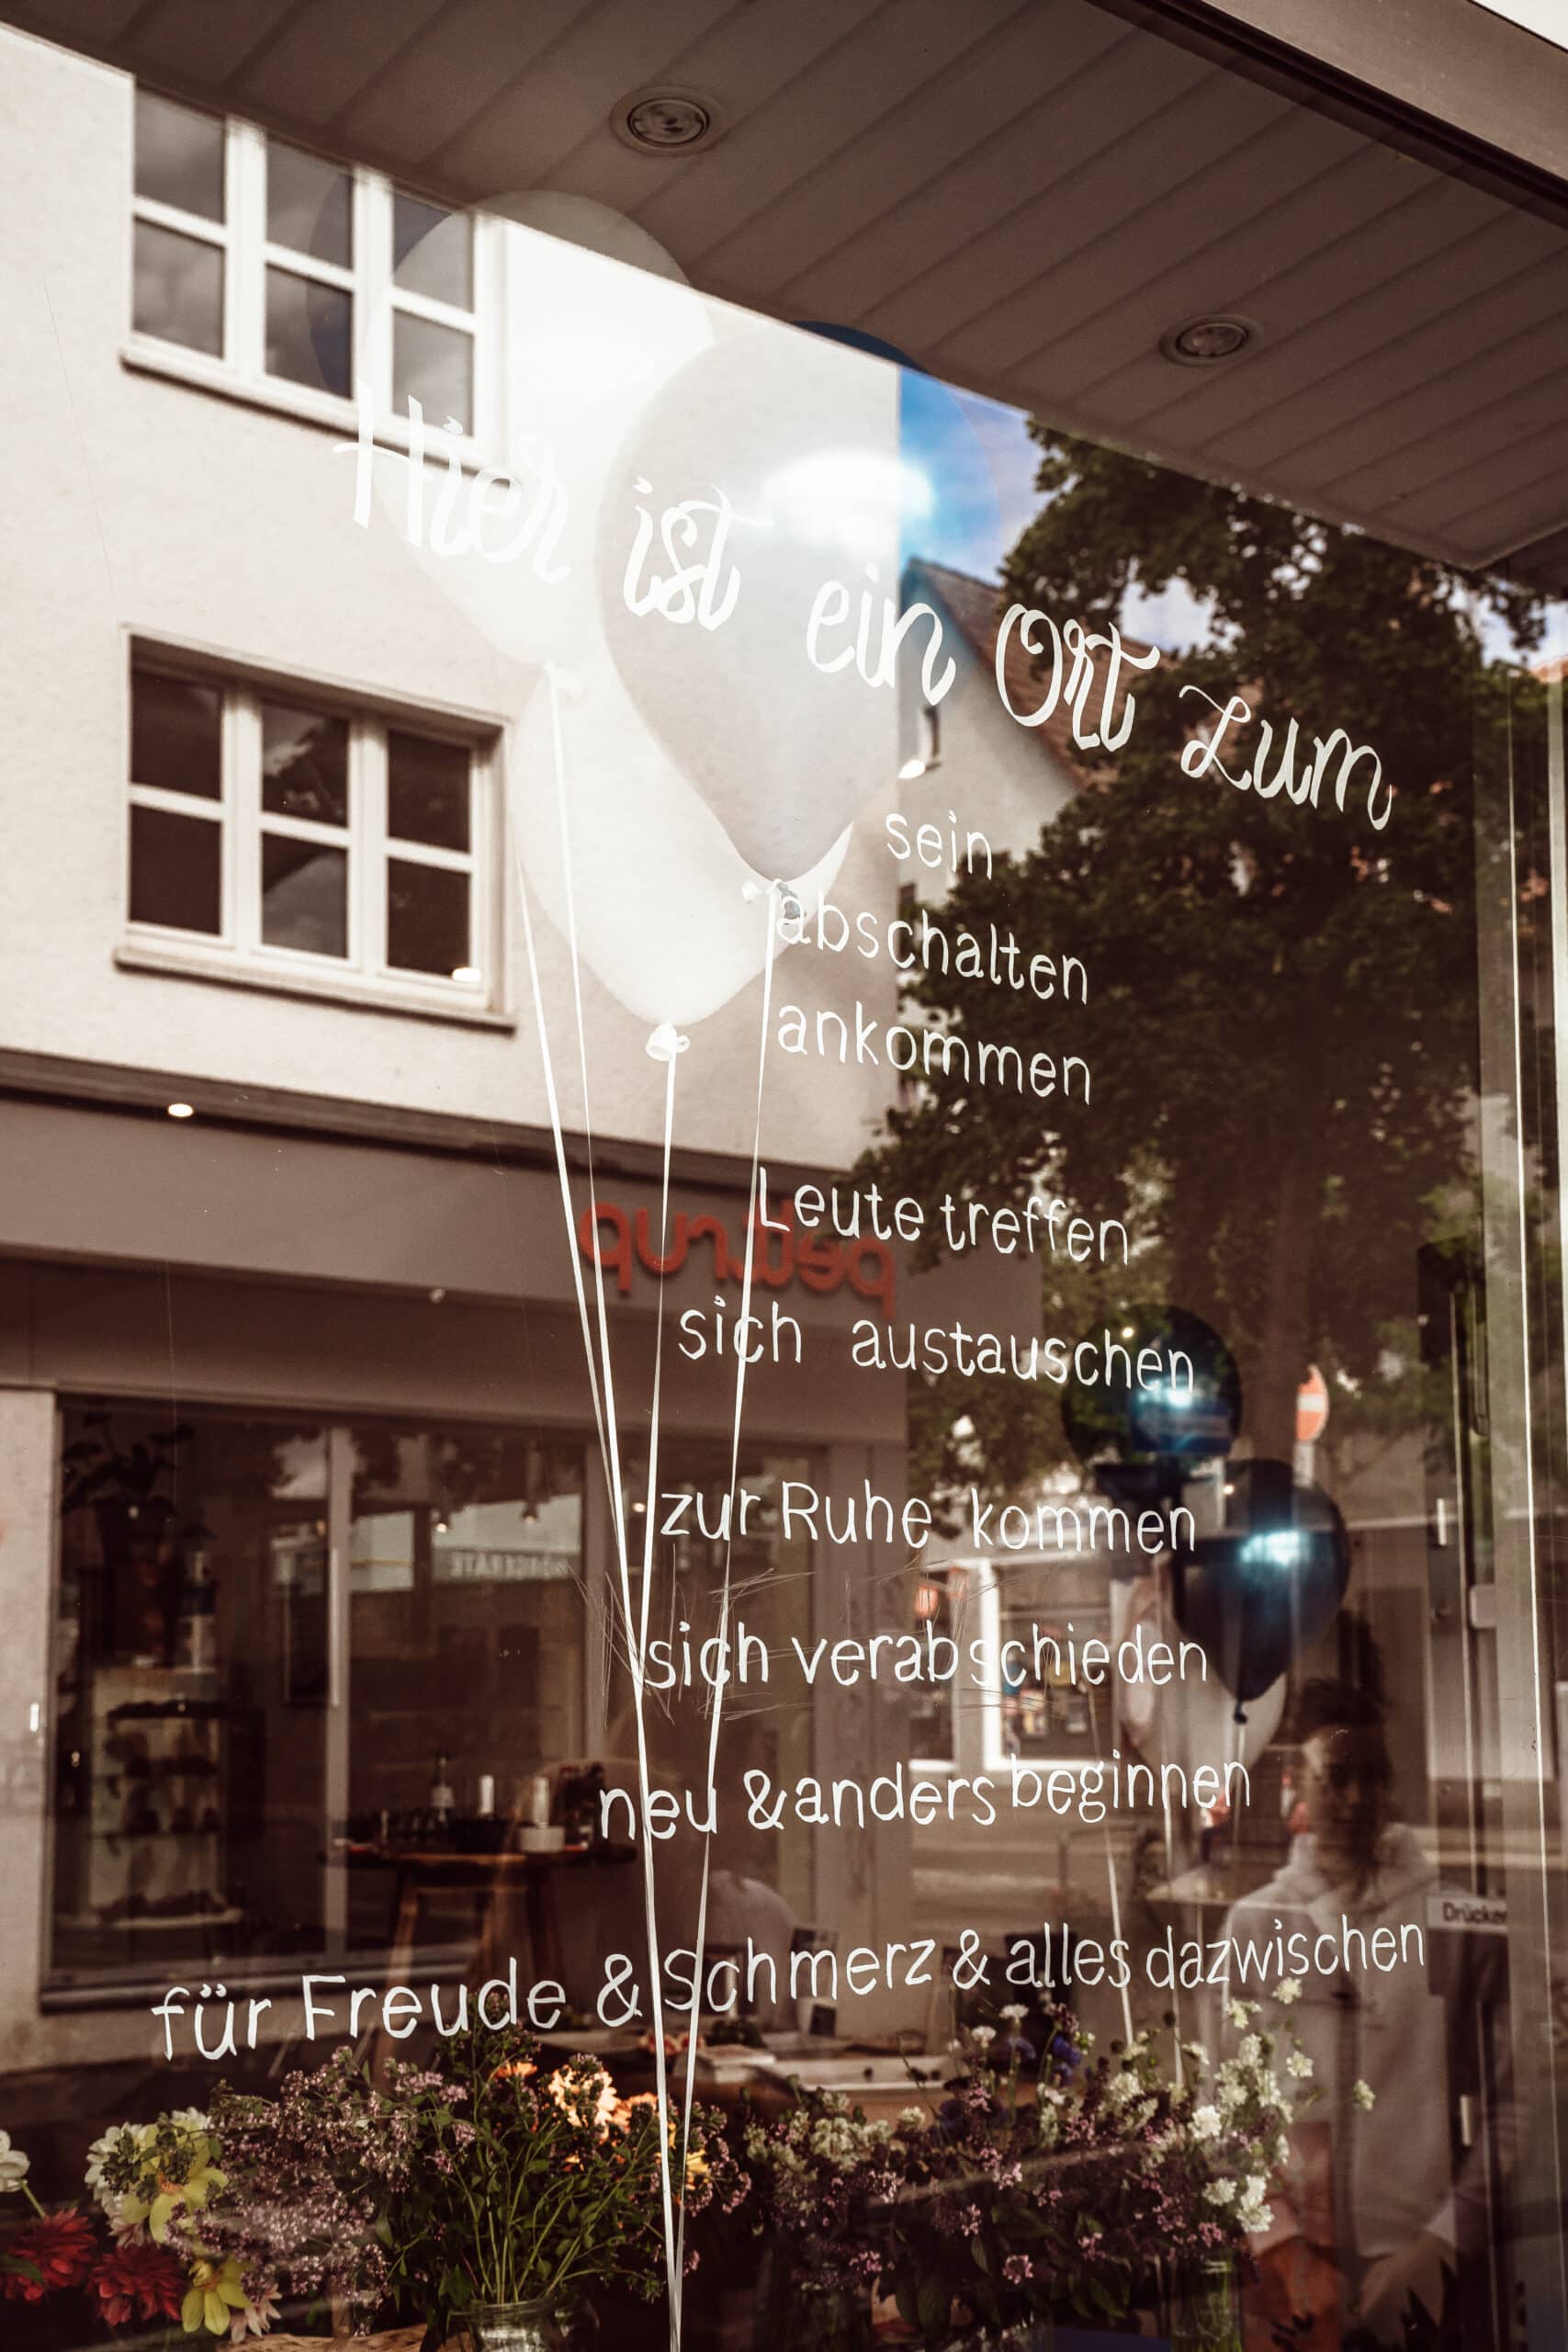 Hier ist ein Ort zum
sein
abschalten
ankommen
Leute treffen
sich austauschen
zur Ruhe kommen
sich verabschieden
neu & anders beginnen
für Freude & Schmerz & alles dazwischen
pettrup
Drücken